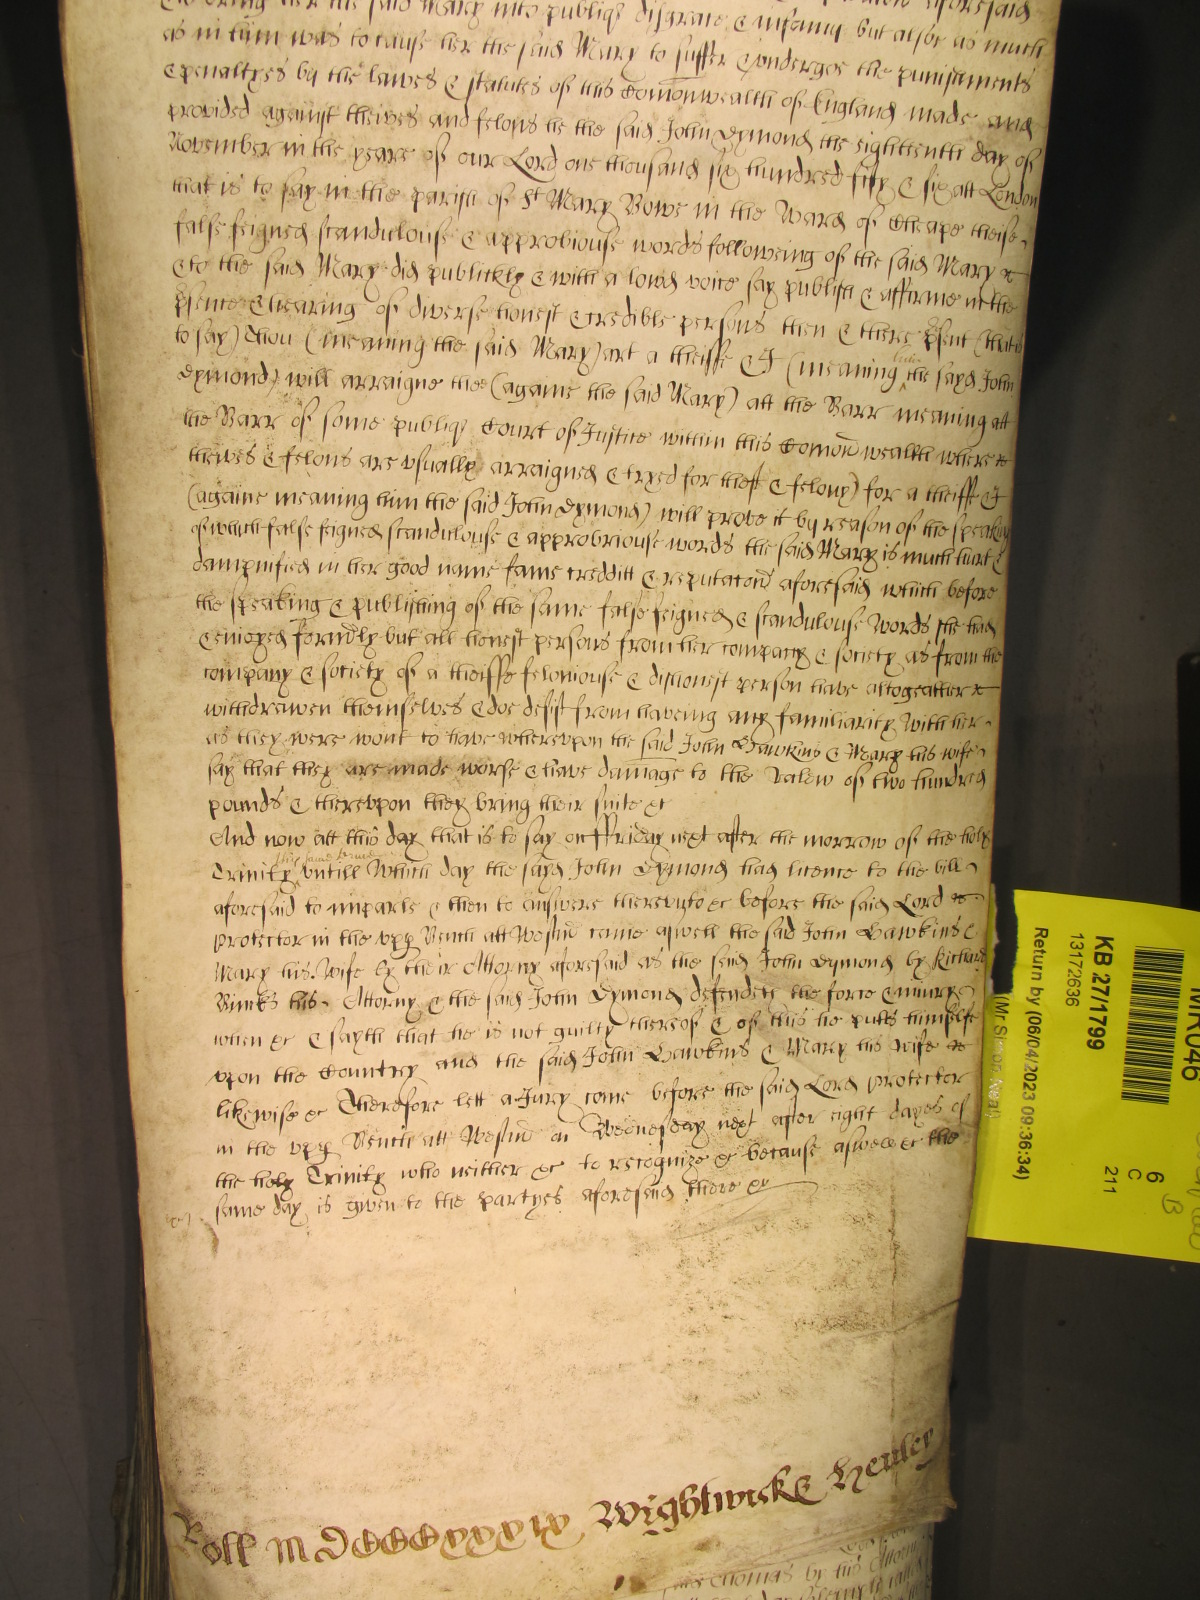 to bring her the said Mary into publiq disgrace & infamy but alsoe as much
as in him was to cause her the said Mary to suffer & undergoe the punishments
& penaltyes by the lawes & statutes of this Comonwealth of England made and
provided against theives and felons he the said John Dymond the eighteenth day of
November in the yeare of our Lord one thousand six hundred fifty & six att London
that is to say in the parish of St Mary Bowe in the Ward of Cheape theise
false feigned scandulouse & approbiouse words followeing of the said Mary &
& to the said Mary did publickly & with a lowd voice say publish & affirme in the
psence & hearing of diverse honest & credible persons then & there psent (that is
to say) Thou (meaning the said Mary) art a theiffe & I (meaning himself the sayd John
Dymond) will arraigne thee (againe the said Mary) att the Barr meaning att
the Barr of some publiq Court of Justice within this Comon wealth where
theives & felons are usually arraigned & tryed for theft & felony) for a theiffe & I
(againe meaning him the said John Dymond) will prove it by reason of the speaking
of which false feigned scandulouse & approbriouse words the said Mary is much hurt &
dampnified in her good name fame credditt & reputacon aforesaid which before
the speaking & publishing of the same false feigned & scandulouse words she had
& enioyed formdly but all honest persons from her company & society as from the
company & society of a theiffe feloniouse & dishonest person have altogeather
withdrawen themselves & doe desist from haveing any familiarity with her
as they were wont to have whereupon the said John Hawkins & Mary his wife
say that they are made worse & have damage to the valew of two hundred
pounds & thereupon they bring their suite &c
And now att this day that is to say on ffriday next after the morrow of the holy
Trinity this same terme untill which day the sayd John Dymond had licence to the bill
aforesaid to imparle & then to answere thereunto &c before the said Lord
Protector in the upp Bench att Westm came aswell the said John Hawkins &
Mary his wife by their Attorny aforesaid as the said John Dymond by Richard
Bincks his Attorny & the said John Dymond defendeth the force & iniury
when &c & sayth that he is not guilty thereof & of this he putts himselfe
upon the Country and the said John Hawkins & Mary his wife
likewise &c Therefore lett a Jury come before the said Lord Protector
in the upp Bench att Westm on Wednesday next after eight dayes of
the holy Trinity who neither &c to recognize &c because aswell &c the
same day is given to the partyes aforesaid there &c
Roll MDCCCxxxix Wightwicke Henley
MR046
KB 27/1799
13172636
Return by (06/04/2023 09:36:34)
6
C
211